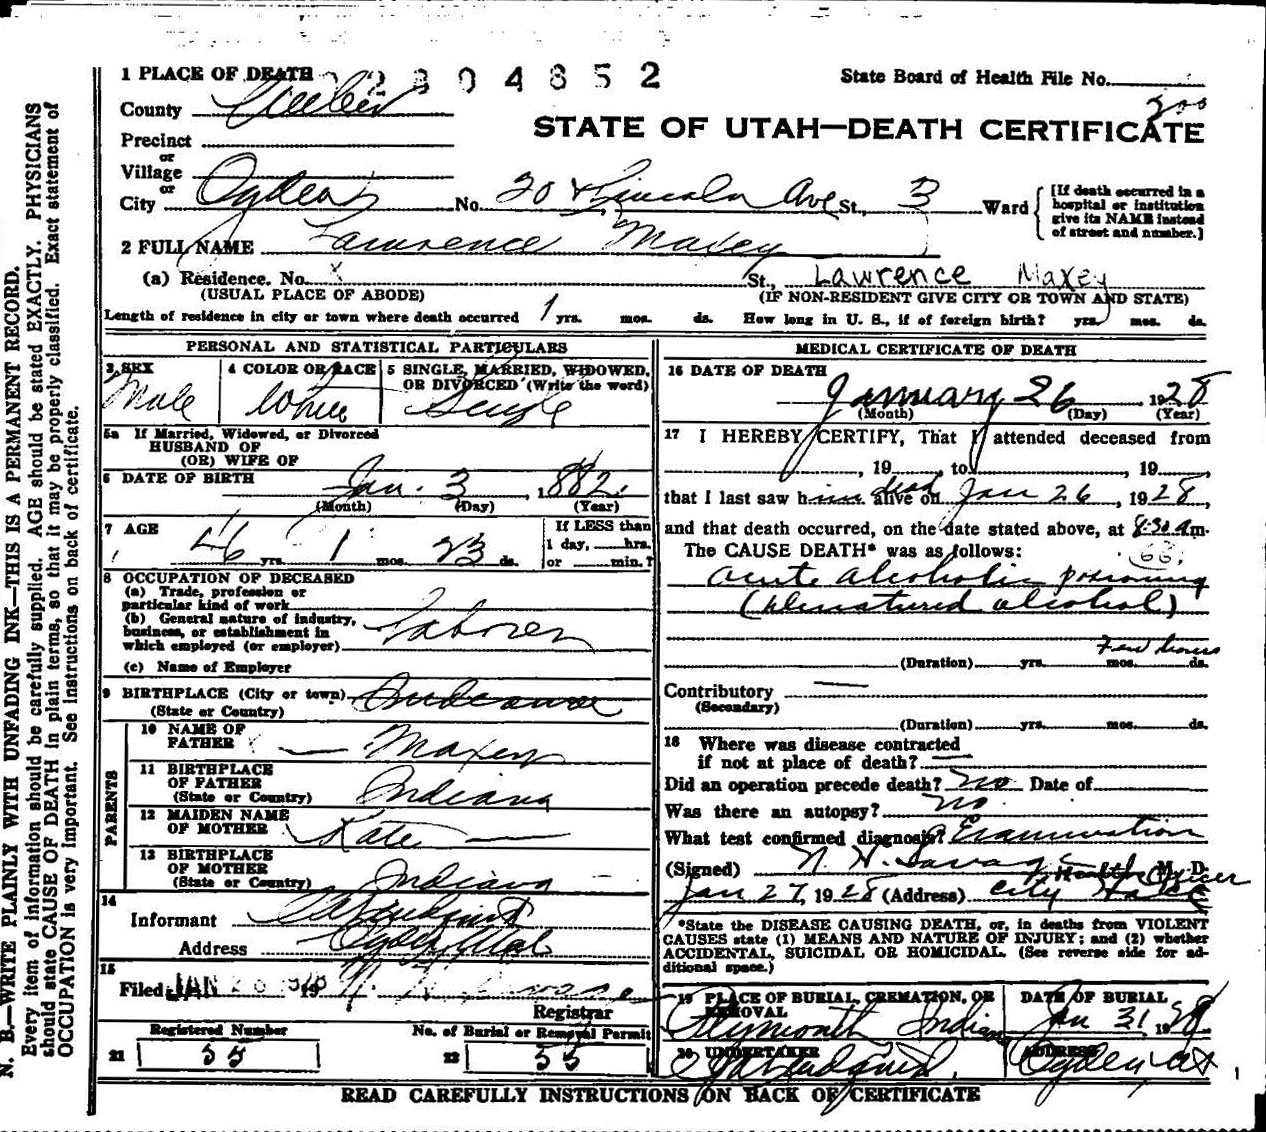 N. B.—WRITE PLAINLY WITH UNFADING INK—THIS IS A PERMANENT RECORD.
Every item of information should be carefully supplied. AGE should be stated EXACTLY. PHYSICIANS
should state CAUSE OF DEATH in plain terms, so that it may be properly classified. Exact statement of
OCCUPATION is very important. See instructions on back of certificate.
1 PLACE OF DEATH 2804852 State Board of Health File No.
County Weber 200
STATE OF UTAH—DEATH CERTIFICATE
Precinct
or
Village
or
City Ogden No. 20 & Lincoln Ave St., 3 Ward
[If death occurred in a
hospital or institution
give its NAME instead
of street and number.]
2 FULL NAME Lawrence Maxey
(a) Residence. No. x St., Lawrence Maxey
(USUAL PLACE OF ABODE) (IF NON-RESIDENT GIVE CITY OR TOWN AND STATE)
Length of residence in city or town where death occurred 1 yrs. mos. ds. How long in U. S., if of foreign birth? yrs. mos. ds.
PERSONAL AND STATISTICAL PARTICULARS
3 SEX 4 COLOR OR RACE 5 SINGLE, MARRIED, WIDOWED,
OR DIVORCED (Write the word)
Male White Single
5a If Married, Widowed, or Divorced
HUSBAND OF
(OR) WIFE OF
6 DATE OF BIRTH Jan. 3, 1882.
(Month) (Day) (Year)
7 AGE 46 yrs. 1 mos. 23 ds.
If LESS than
1 day, hrs.
or min.?
8 OCCUPATION OF DECEASED
(a) Trade, profession or
particular kind of work
(b) General nature of industry,
business, or establishment in
which employed (or employer) Laborer
(c) Name of Employer
9 BIRTHPLACE (City or town) Indiana
(State or Country)
PARENTS
10 NAME OF
FATHER — Maxey
11 BIRTHPLACE
OF FATHER
(State or Country) Indiana
12 MAIDEN NAME
OF MOTHER Kate —
13 BIRTHPLACE
OF MOTHER
(State or Country) Indiana
14
Informant
Address Ogden, Utah
15
Filed JAN 28 1928 19
Registrar
Registered Number No. of Burial or Removal Permit
21 55 22 55
MEDICAL CERTIFICATE OF DEATH
16 DATE OF DEATH
January 26, 1928
(Month) (Day) (Year)
17 I HEREBY CERTIFY, That I attended deceased from
, 19 , to , 19 ,
that I last saw him dead alive on Jan 26, 1928
and that death occurred, on the date stated above, at 8:30 Am.
The CAUSE DEATH* was as follows:
66
acute alcoholic poisoning
(Denatured alcohol)
Few hours
(Duration) yrs. mos. ds.
Contributory —
(Secondary)
(Duration) yrs. mos. ds.
18 Where was disease contracted
if not at place of death? —
Did an operation precede death? No Date of
Was there an autopsy? no.
What test confirmed diagnosis? Examination
(Signed) N. H. Savage M. D.
Health Officer
Jan 27, 1928 (Address) City Hall
*State the DISEASE CAUSING DEATH, or, in deaths from VIOLENT
CAUSES state (1) MEANS AND NATURE OF INJURY; and (2) whether
ACCIDENTAL, SUICIDAL OR HOMICIDAL. (See reverse side for ad-
ditional space.)
19 PLACE OF BURIAL, CREMATION, OR
REMOVAL
Plymouth Indiana
DATE OF BURIAL
Jan 31 1928
20 UNDERTAKER
ADDRESS
Ogden, Ut
READ CAREFULLY INSTRUCTIONS ON BACK OF CERTIFICATE